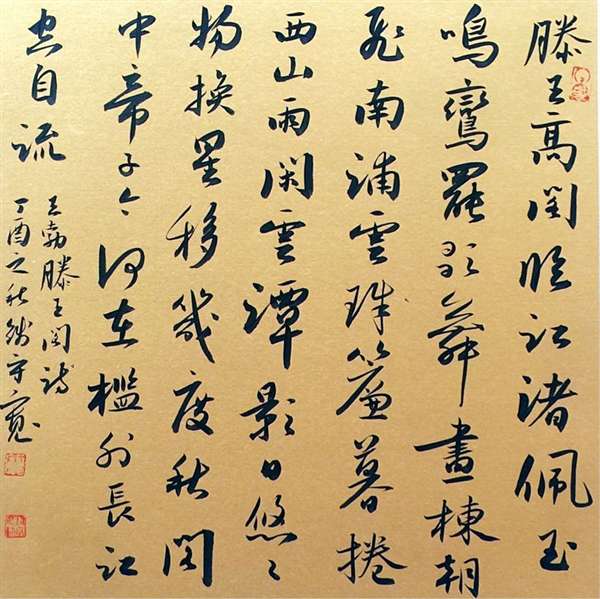 滕王高閣臨江渚佩玉
鳴鸞罷歌舞畫棟朝
飛南浦雲珠簾暮捲
西山雨閑雲潭影日悠々
物換星移幾度秋閣
中帝子今何在檻外長江
空自流
王勃滕王閣詩
丁酉之秋守寬